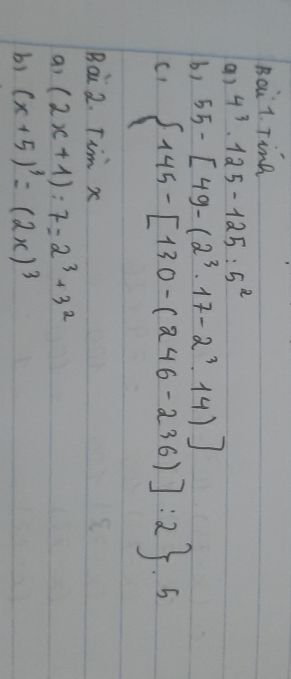 Bài 1. Tính
a, 4³ . 125 - 125 : 5²
b, 55 - [49 - (2³ . 17 - 2³ . 14)]
c, {145 - [130 - (246 - 236)] : 2} . 5
Bài 2. Tìm x
a, (2x + 1) : 7 = 2³ + 3²
b, (x + 5)³ = (2x)³